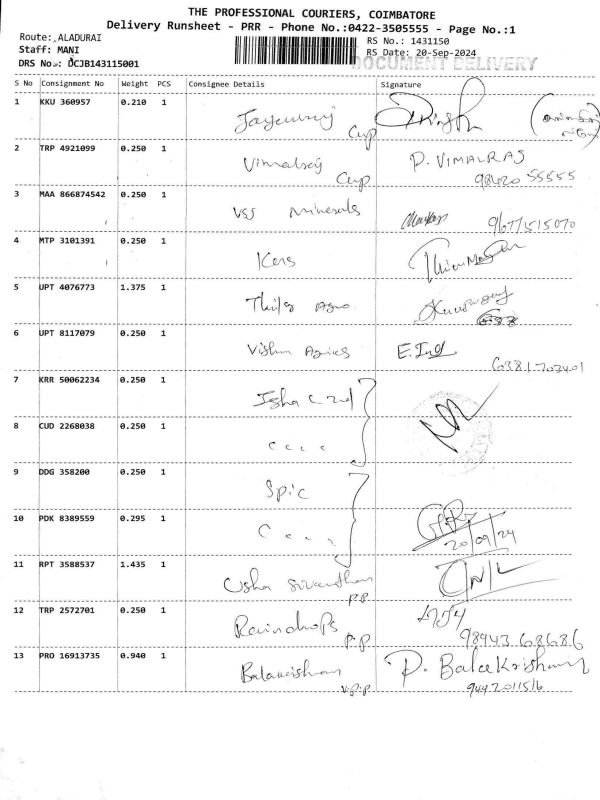 THE PROFESSIONAL COURIERS, COIMBATORE
Delivery Runsheet - PRR - Phone No.:0422-3505555 - Page No.:1
Route: ALADURAI
RS No.: 1431150
Staff: MANI
RS Date: 20-Sep-2024
DRS No.: DCJB143115001
DOCUMENT DELIVERY
S No Consignment No Weight PCS Consignee Details Signature
1 KKU 360957 0.210 1
Cup
2 TRP 4921099 0.250 1 Vimalraj P. VIMALRAJ
Cup 98420 55555
3 MAA 866874542 0.250 1 VSS Minerals 9677515070
4 MTP 3101391 0.250 1
5 UPT 4076773 1.375 1
6 UPT 8117079 0.250 1 Vishnu E.Ind
6381703401
7 KRR 50062234 0.250 1 Isha
8 CUD 2268038 0.250 1
9 DDG 358200 0.250 1 Spic
10 PDK 8389559 0.295 1
20/09/24
11 RPT 3588537 1.435 1 Usha
P.P
12 TRP 2572701 0.250 1 Raindrops
P.P 98943 68686
13 PRO 16913735 0.940 1 Balakrishnan P. Balakrishnan
V.P.P 9442011516